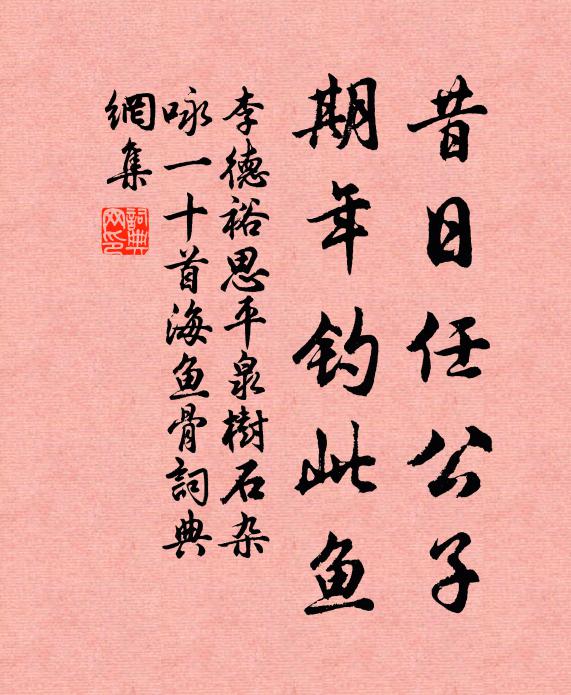 昔日任公子
期年钓此鱼
李德裕思平泉樹石杂
咏一十首海鱼骨詞典
網集
詞典網印